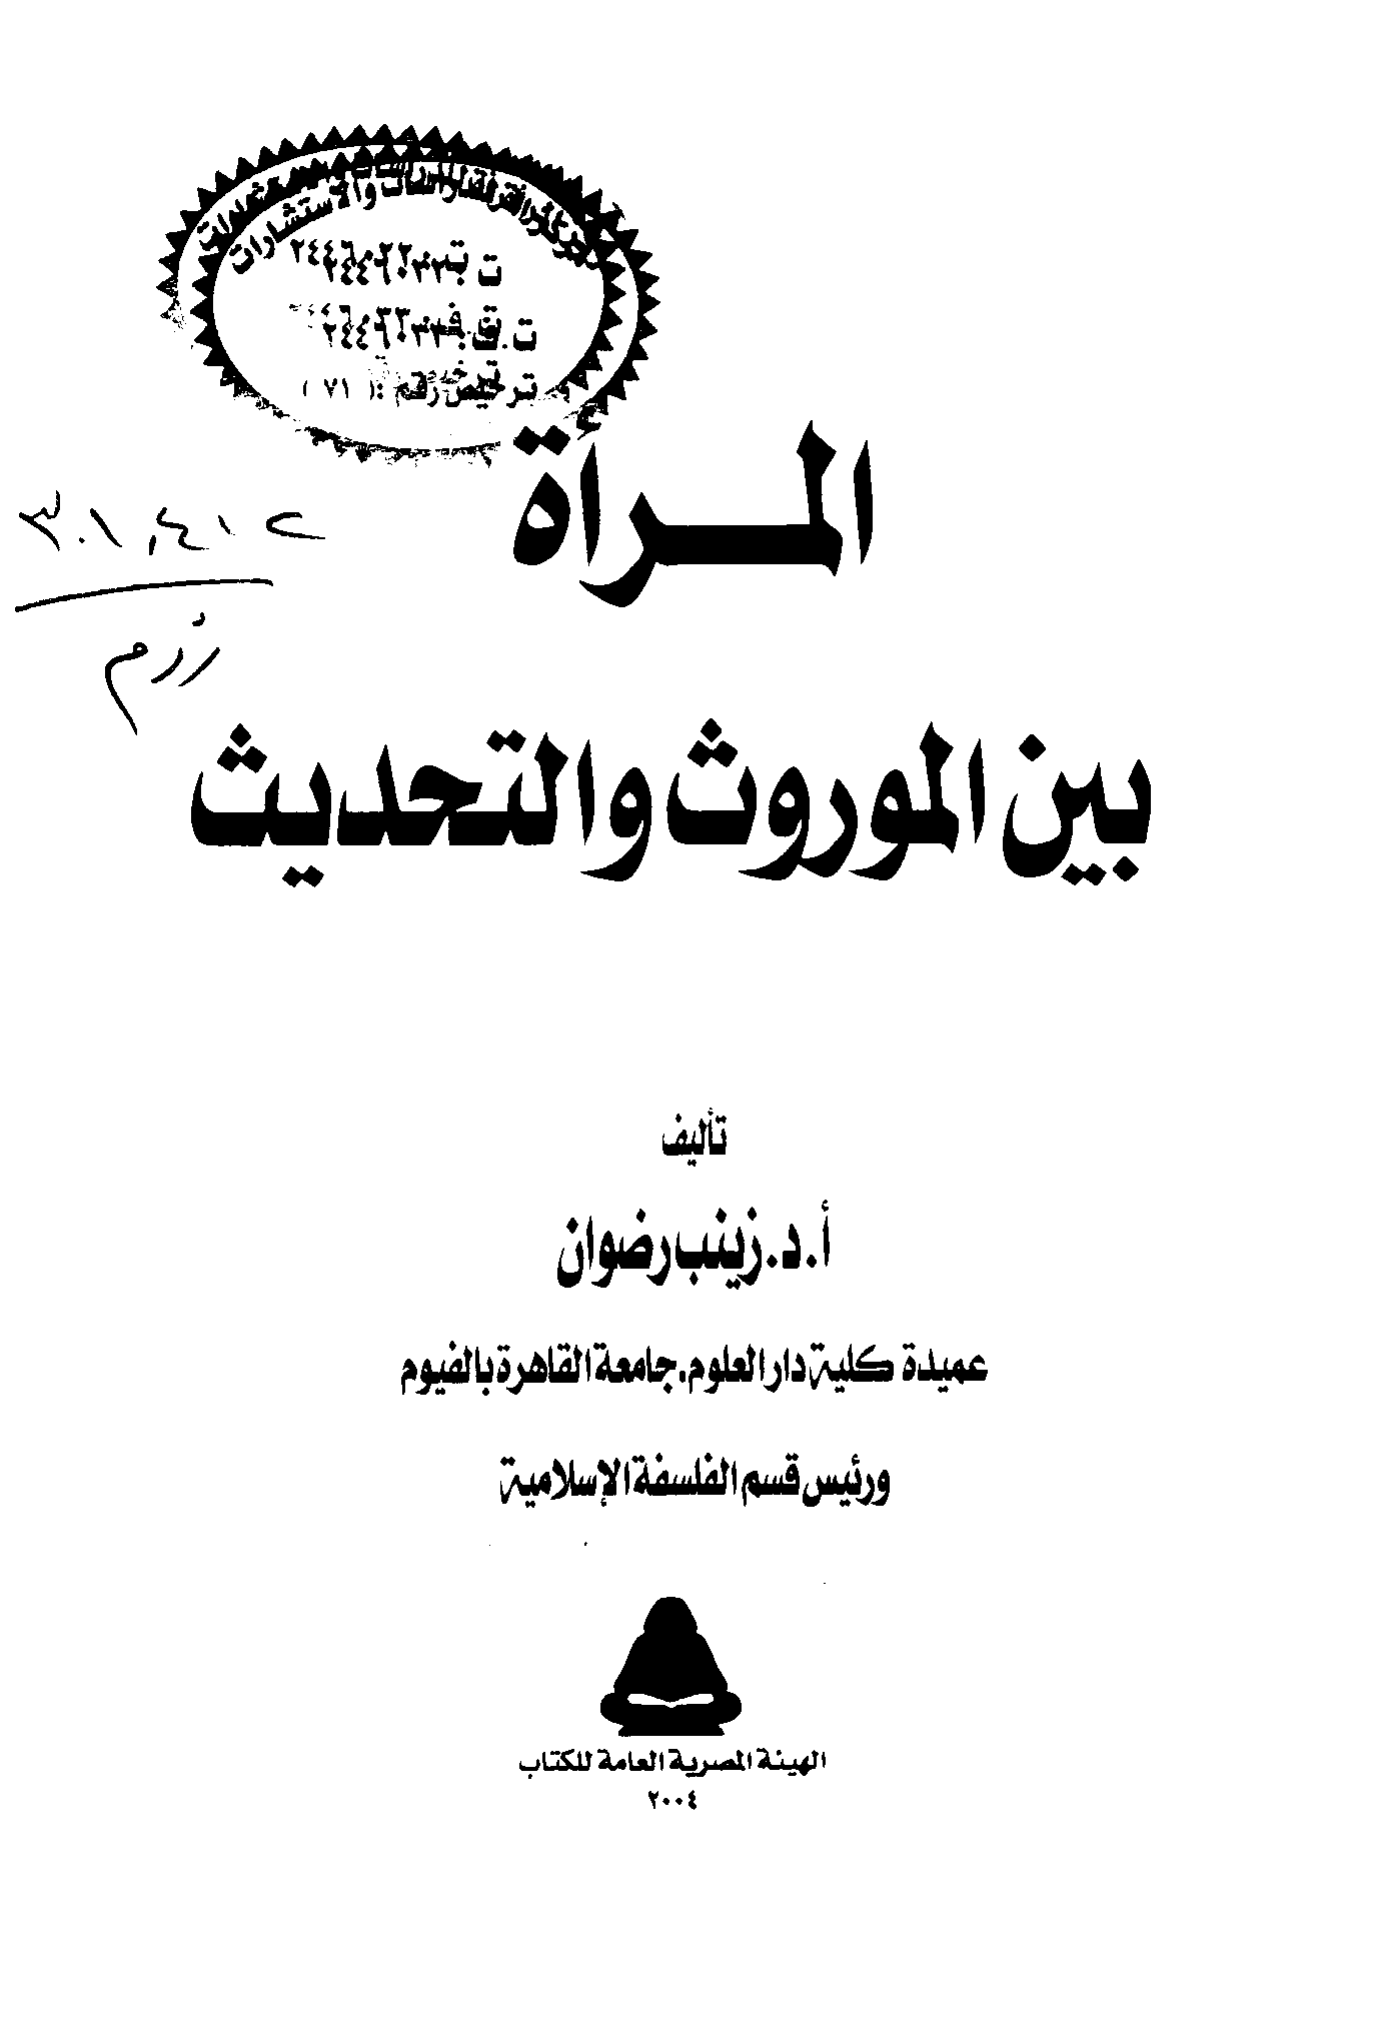 ت : ٢٤٤٦٠٣٣
ت.ف: ٢٤٤٦٠٣٣
ترخيص رقم : ( ٧١ )
٣٠١,٤١٢
المرأة
بين الموروث والتحديث
تأليف
أ.د.زينب رضوان
عميدة كلية دار العلوم، جامعة القاهرة بالفيوم
ورئيس قسم الفلسفة الإسلامية
الهيئة المصرية العامة للكتاب
٢٠٠٤